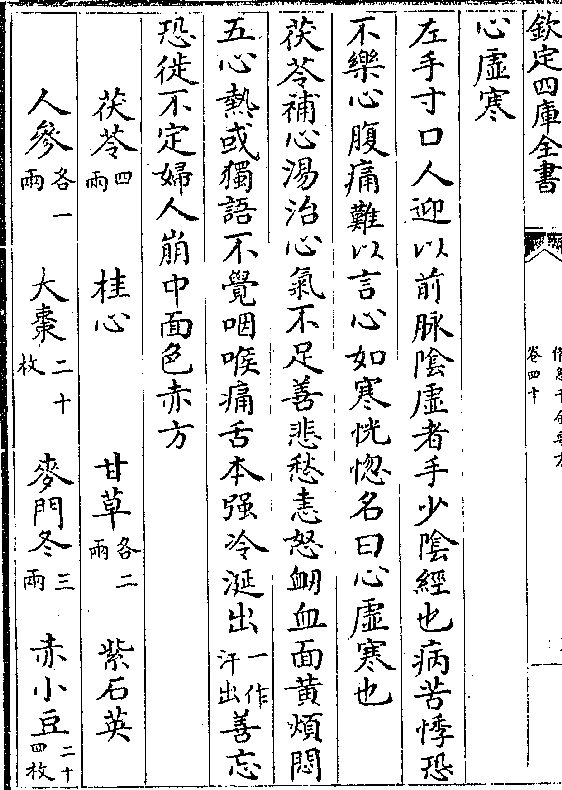 欽定四庫全書
卷四十
心虛寒
左手寸口人迎以前脉陰虛者手少陰經也病苦悸恐
不樂心腹痛難以言心如寒恍惚名曰心虛寒也
茯苓補心湯治心氣不足善悲愁恚怒衂血面黄煩悶
五心熱或獨語不覺咽喉痛舌本强冷涎出一作汗出善忘
恐徙不定婦人崩中面色赤方
茯苓四兩 桂心 甘草各二兩 紫石英
人參各一兩 大棗二十枚 麥門冬三兩 赤小豆二十四枚